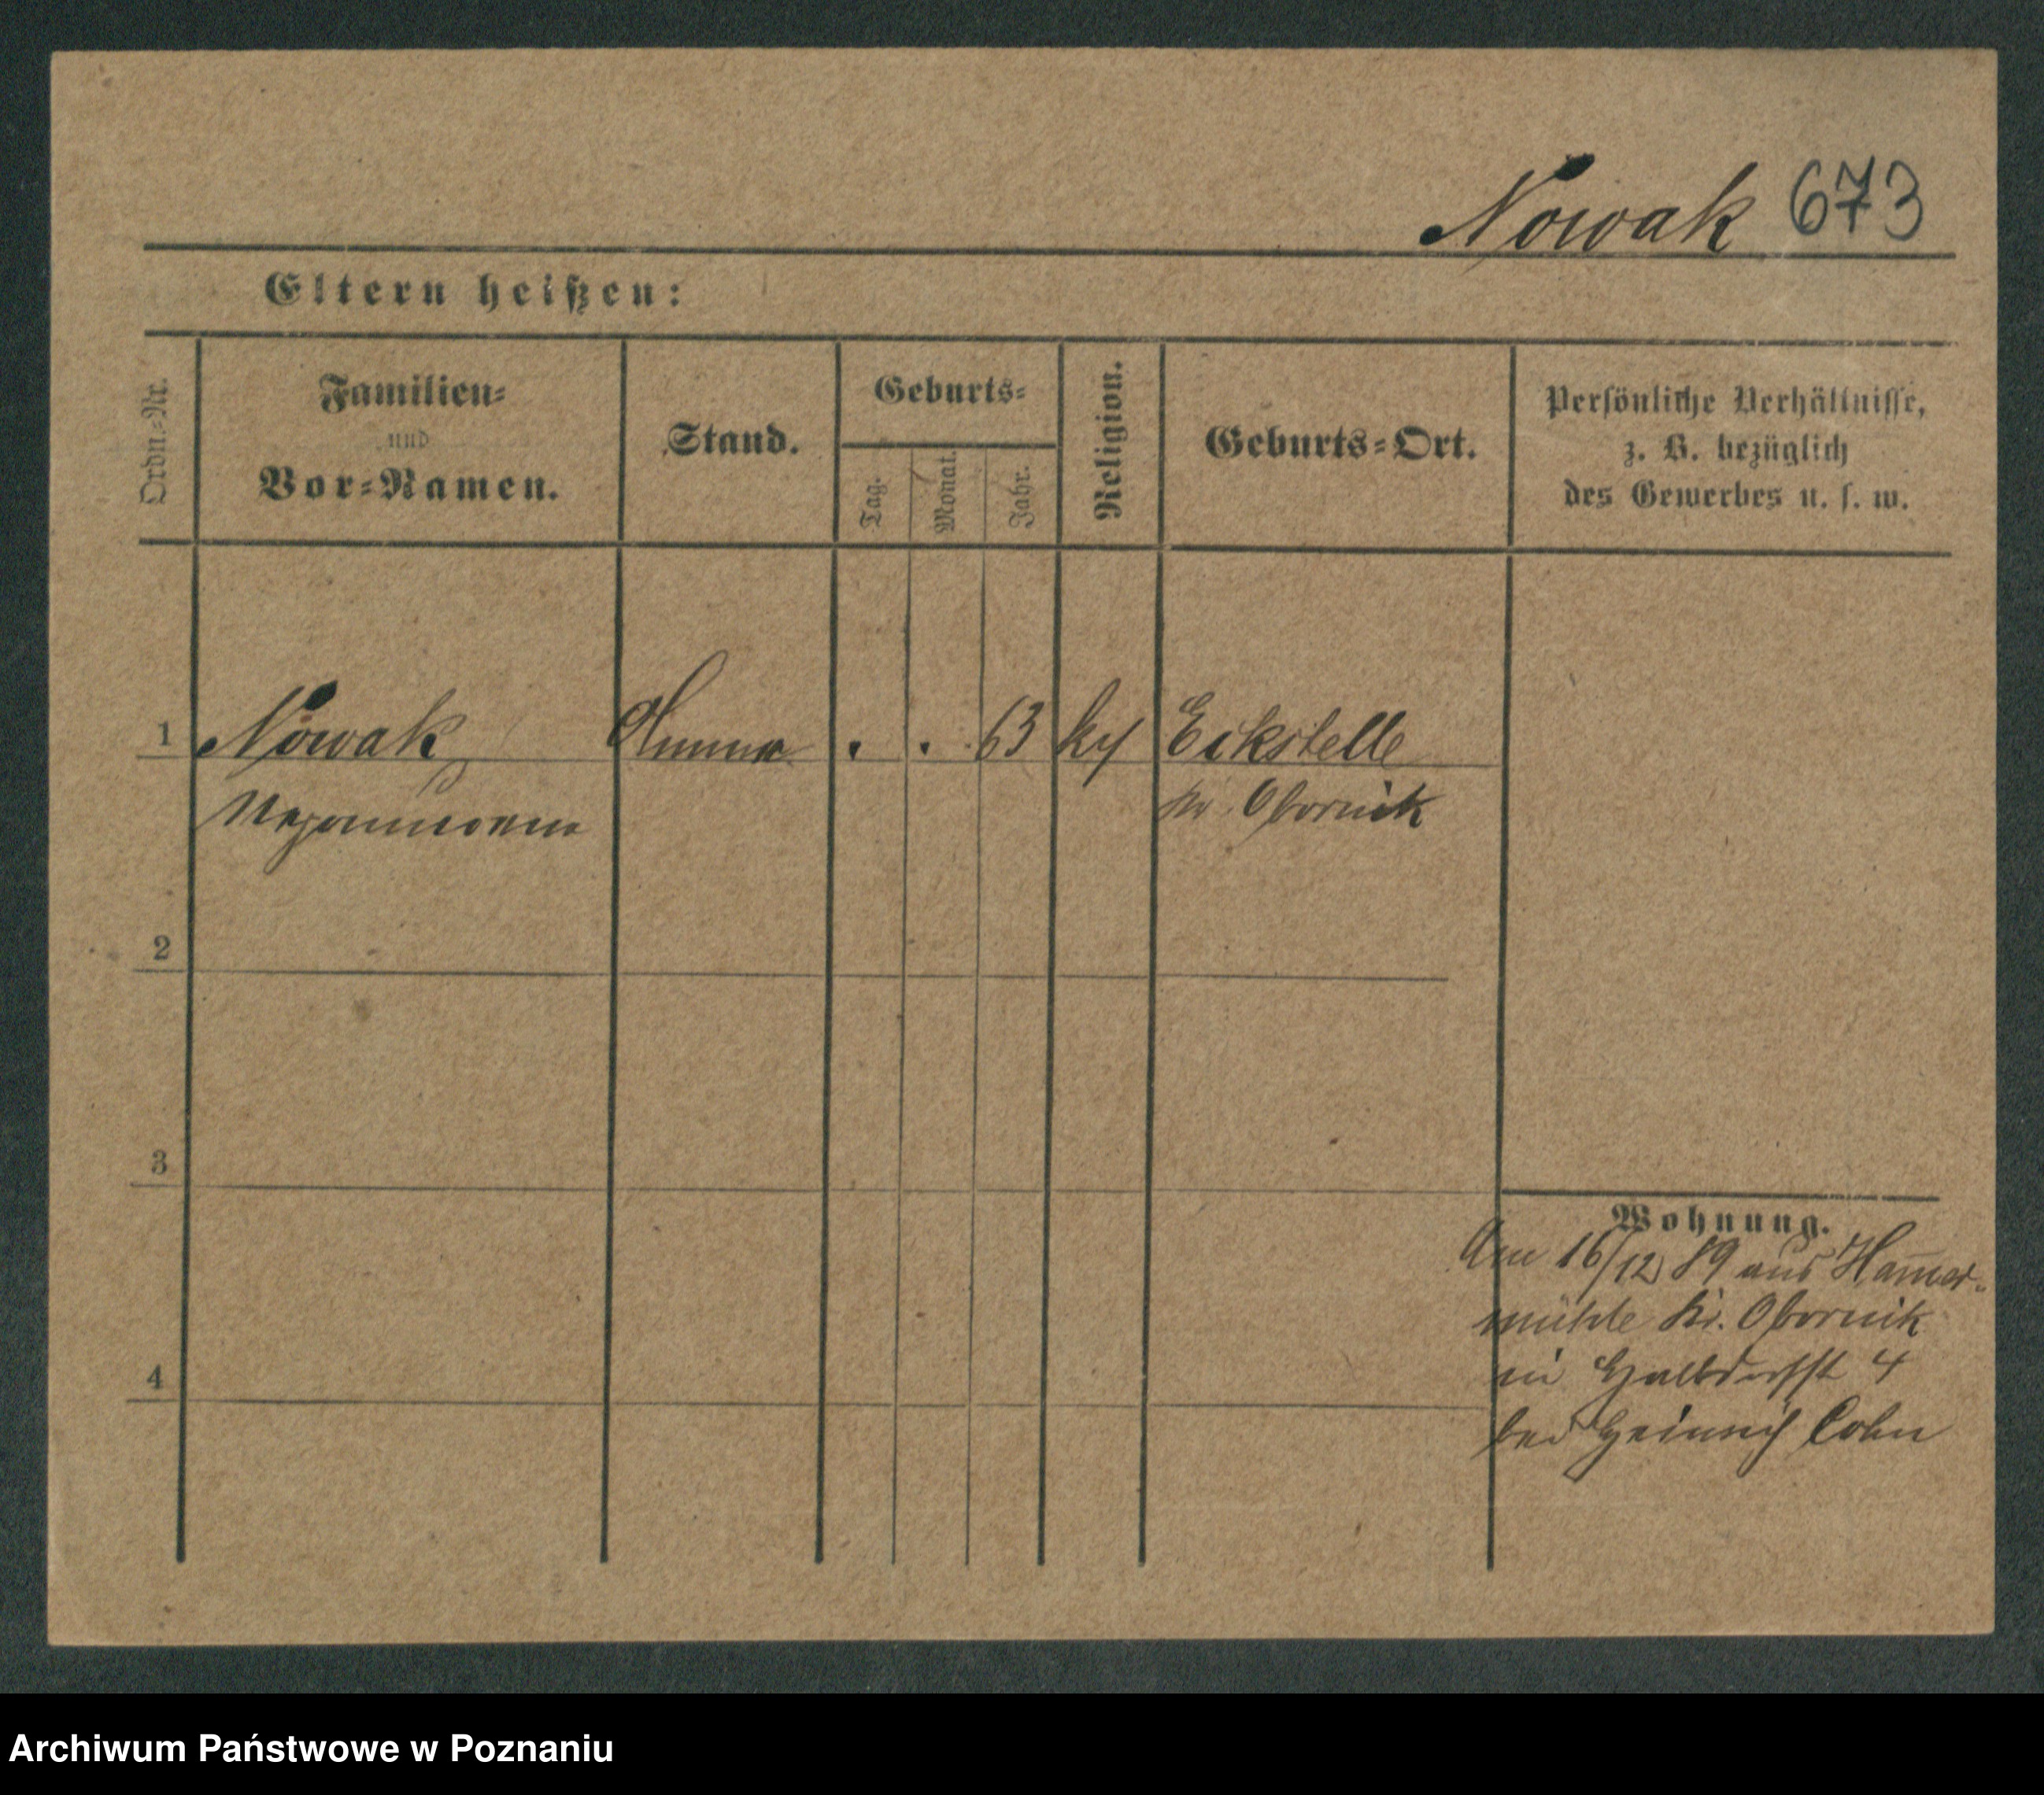 Nowak 673
Eltern heißen:
Ordn.-Nr.
Familien-
und
Vor-Namen.
Stand.
Geburts-
Tag.
Monat.
Jahr.
Religion.
Geburts-Ort.
Persönliche Verhältnisse,
z. B. bezüglich
des Gewerbes u. s. w.
1 Nowak . . 63 Eckstelle
Kr. Obornik
2
3
4
Wohnung.
Am 16/12 89 aus Hamer-
mühle Kr. Obornik
in Halbdorfst 4
bei Heinrich Cohn
Archiwum Państwowe w Poznaniu